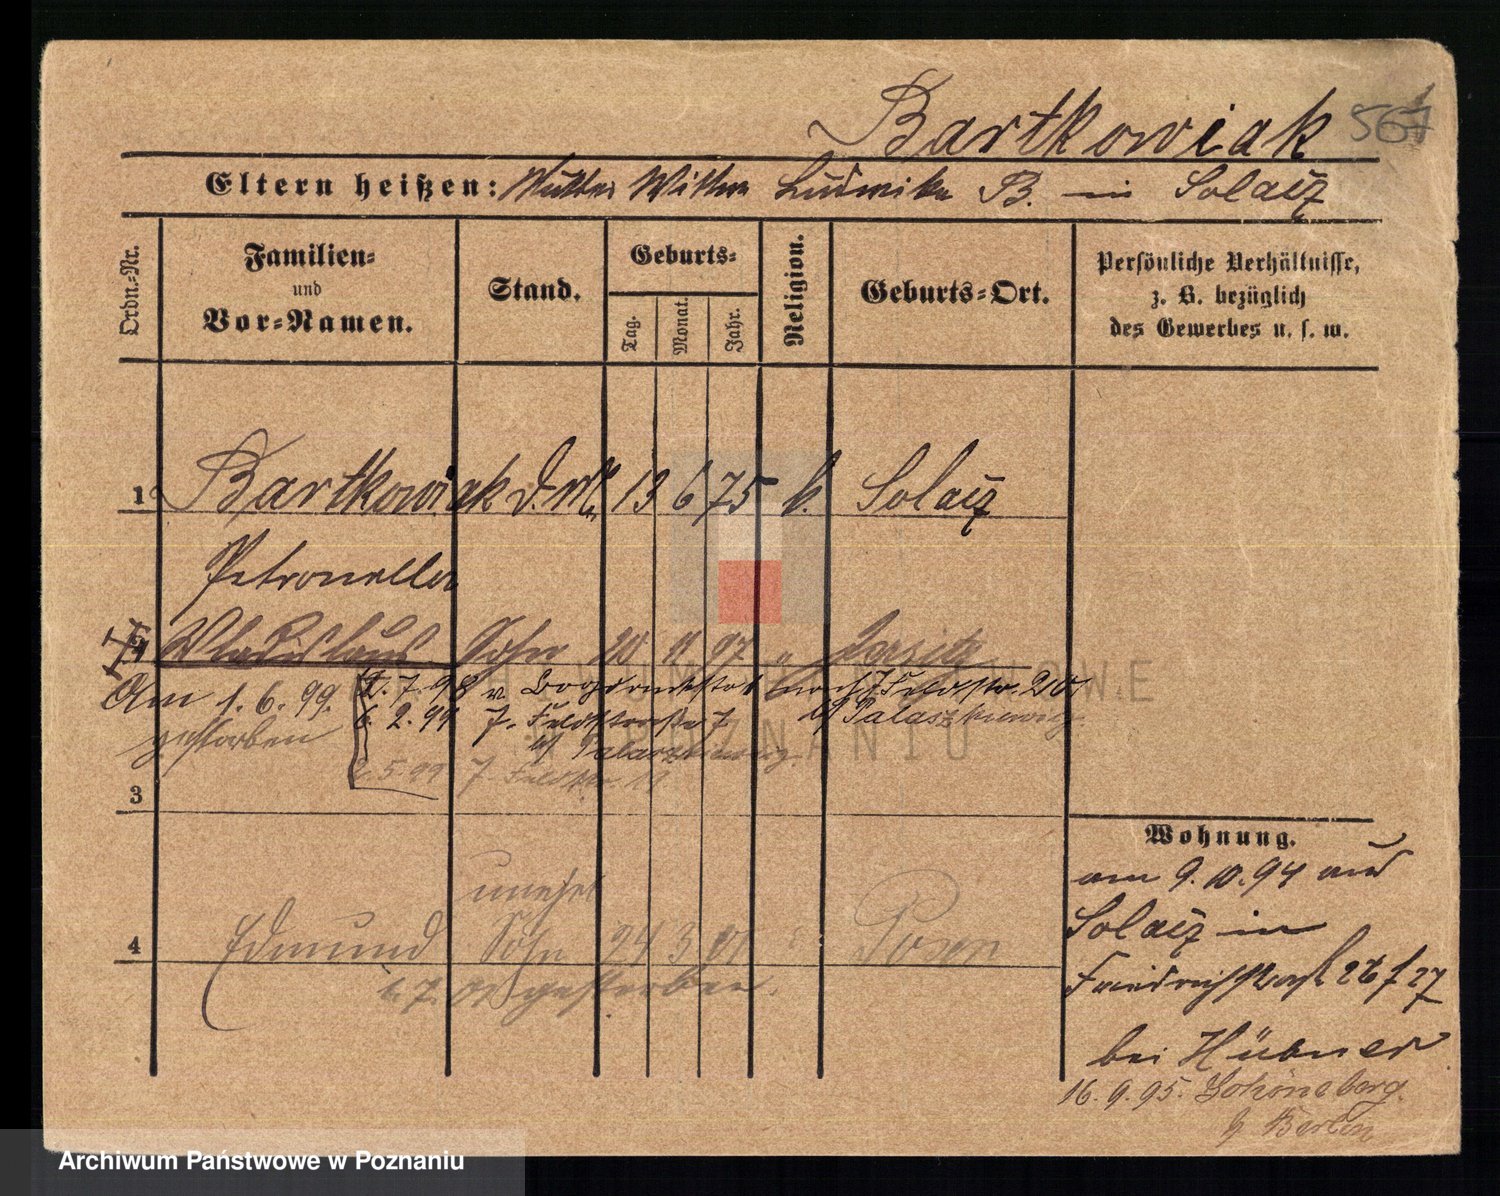 Bartkowiak 567
Eltern heißen: Mutter Wittwe Ludwika B. in Solacz
Ordn.-Nr.
Familien-
und
Vor-Namen.
Stand.
Geburts-
Tag.
Monat.
Jahr.
Religion.
Geburts-Ort.
Persönliche Verhältnisse,
z. B. bezüglich
des Gewerbes u. s. w.
1 Bartkowiak d. M. 13 6 75 k. Solacz
Petronella
Wladislaus Sohn 20 11 97 " Jersitz
Am 1. 6. 99. 1. 7. 98 v. nach J. Feldstr.
gestorben 6. 2. 99 J. Feldstraße 7 b/ Palaszkiewicz
b/ Palaszkiewicz
5. 99 J. Feldstr. 19
3
unehel
4 Edmund Sohn 24 3 01 Posen
7. 01 gestorben.
Wohnung.
am 9. 10. 94 aus
Solacz in
Friedrichstraße 26/27
bei Hübner
16. 9. 95. Schöneberg
b Berlin
ARCHIWUM PAŃSTWOWE
W POZNANIU
Archiwum Państwowe w Poznaniu